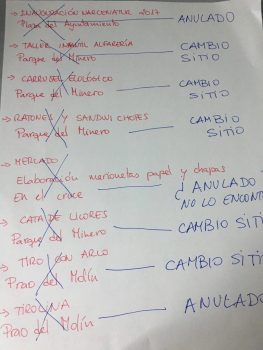 → INAUGURACIÓN MARCENATUR 2017
Plaza del Ayuntamiento
ANULADO
→ TALLER INFANTIL ALFARERÍA
Parque del Minero
CAMBIO
SITIO
→ CARRUSEL ECOLÓGICO
Parque del Minero
CAMBIO
SITIO
→ RATONES Y SANDWICHOTES
Parque del Minero
CAMBIO
SITIO
→ MERCADO
Elaboración marionetas papel y chapas
En el cruce
¿ ANULADO -
NO LO ENCONT
→ CATA DE LICORES
Parque del Minero
CAMBIO SITIO
→ TIRO CON ARCO
Prao del Molín
CAMBIO SITIO
→ TIROLINA
Prao del Molín
ANULADO